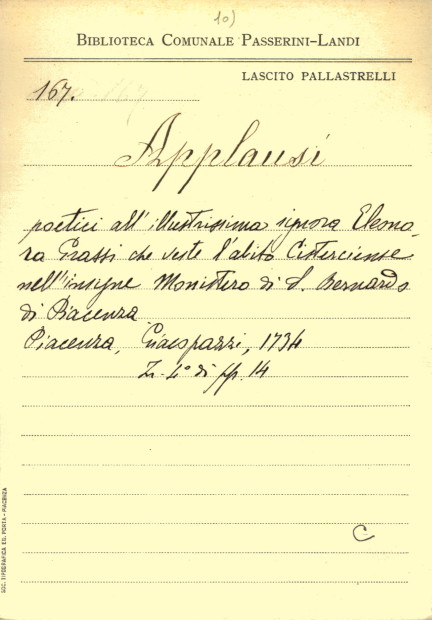 10)
BIBLIOTECA COMUNALE PASSERINI-LANDI
LASCITO PALLASTRELLI
167.
Applausi
poetici all'illustrissima signora Eleono-
ra Grassi che veste l'abito Cisterciense
nell'insigne Monistero di S. Bernardo
di Piacenza
Piacenza, Giacopazzi, 1734
In 4° di pp. 14
C
SOC. TIPOGRAFICA ED. PORTA - PIACENZA